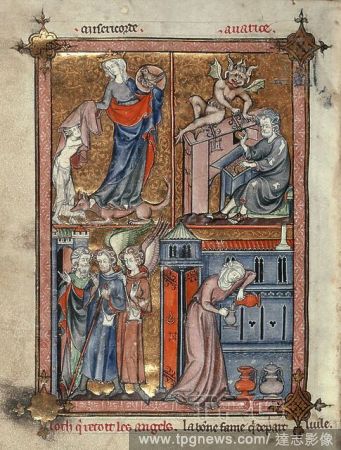 misericorde auarice
loth q̇ recoit les angels. la bone fame q̇ depart luile.
www.tpgnews.com / 達志影像